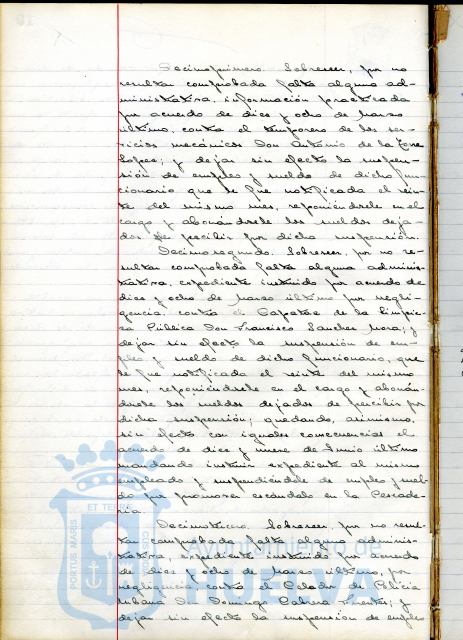 Decimoprimero. Sobreseer, por no
resultar comprobada falta alguna ad-
ministrativa, información practicada
por acuerdo de dies y ocho de Marzo
último, contra el temporero de los ser-
vicios mecánicos Don Antonio de la Torre
López; y dejar sin efecto la suspen-
sión de empleo y sueldo de dicho fun-
cionario que le fue notificada el vein-
te del mismo mes, reponiéndosele en el
cargo y abonándosele los sueldos deja-
dos de percibir por dicha suspensión.
Decimosegundo. Sobreseer, por no re-
sultar comprobada falta alguna adminis-
trativa, expediente instruido por acuerdo de
dies y ocho de Marzo último por negli-
gencia, contra el Capataz de la Limpieza
Pública Don Francisco Sánchez Mora; y
dejar sin efecto la suspensión de em-
pleo y sueldo de dicho funcionario, que
le fue notificada el veinte del mismo
mes, reponiéndosele en el cargo y abonán-
dosele los sueldos dejados de percibir por
dicha suspensión; quedando, asimismo,
sin efecto con iguales consecuencias el
acuerdo de dies y nueve de Junio último
mandando instruir expediente al mismo
empleado y suspendiéndole de empleo y suel-
do por promover escándalo en la Pescade-
ría.
Decimotercero. Sobreseer, por no resul-
tar comprobada falta alguna adminis-
trativa, expediente instruido por acuerdo
de dies y ocho de Marzo último, por
negligencia, contra el Celador de Policía
Urbana Don Domingo Cabrera Fuentes; y
dejar sin efecto la suspensión de empleo
PORTUS MARIS
ET TERRAE
CUSTODIA
Ayuntamiento de
HUELVA